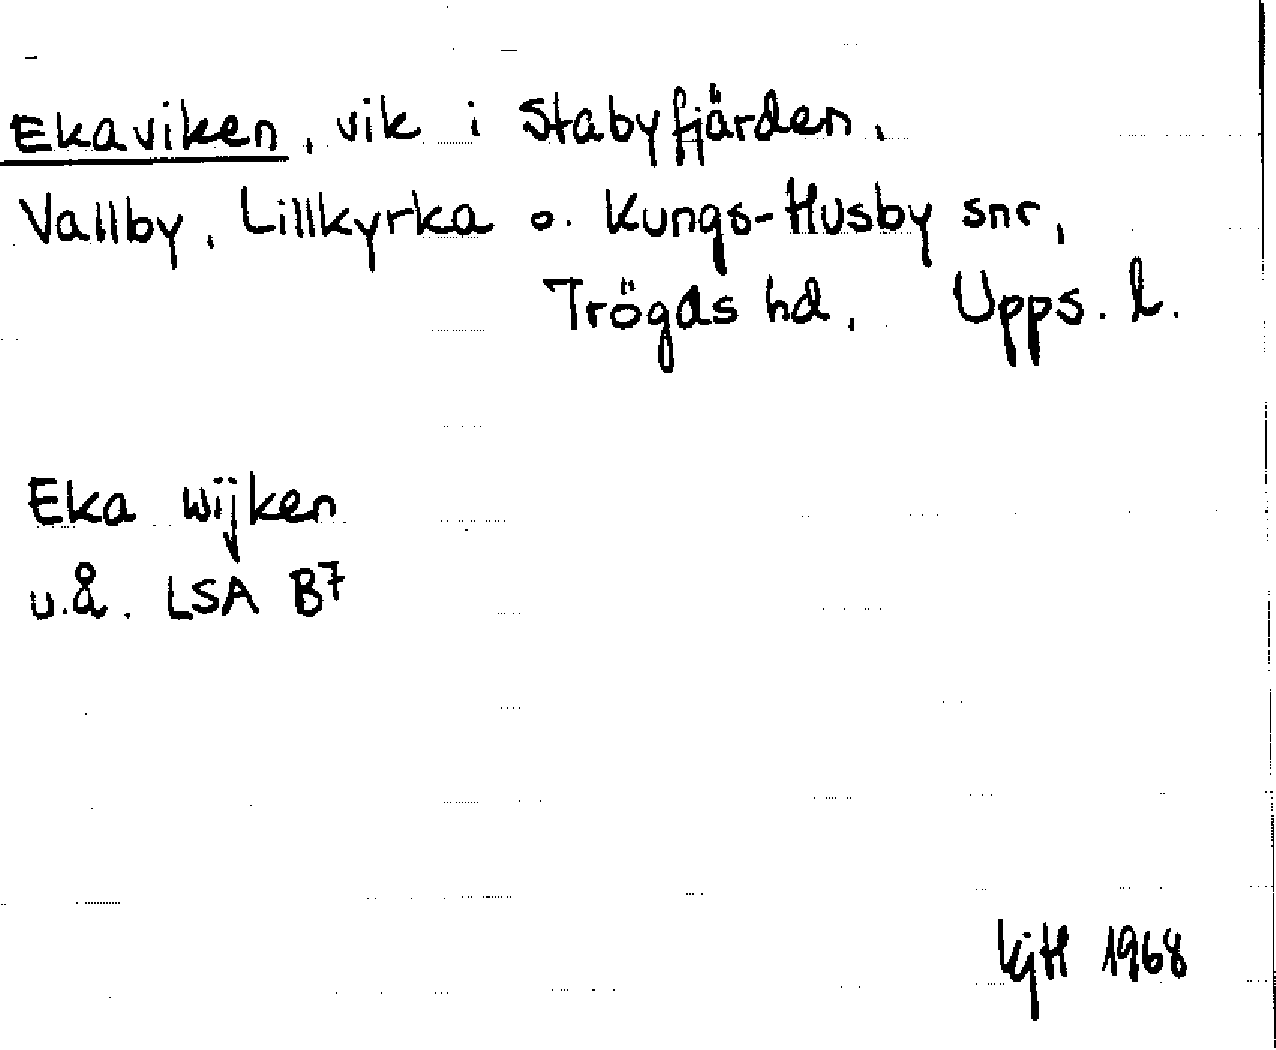 Ekaviken, vik i Stabyfjärden,
Vallby, Lillkyrka o. Kungs-Husby snr,
Trögds hd, Upps. l.
Eka wijken
u.å. LSA B7
KjH 1968